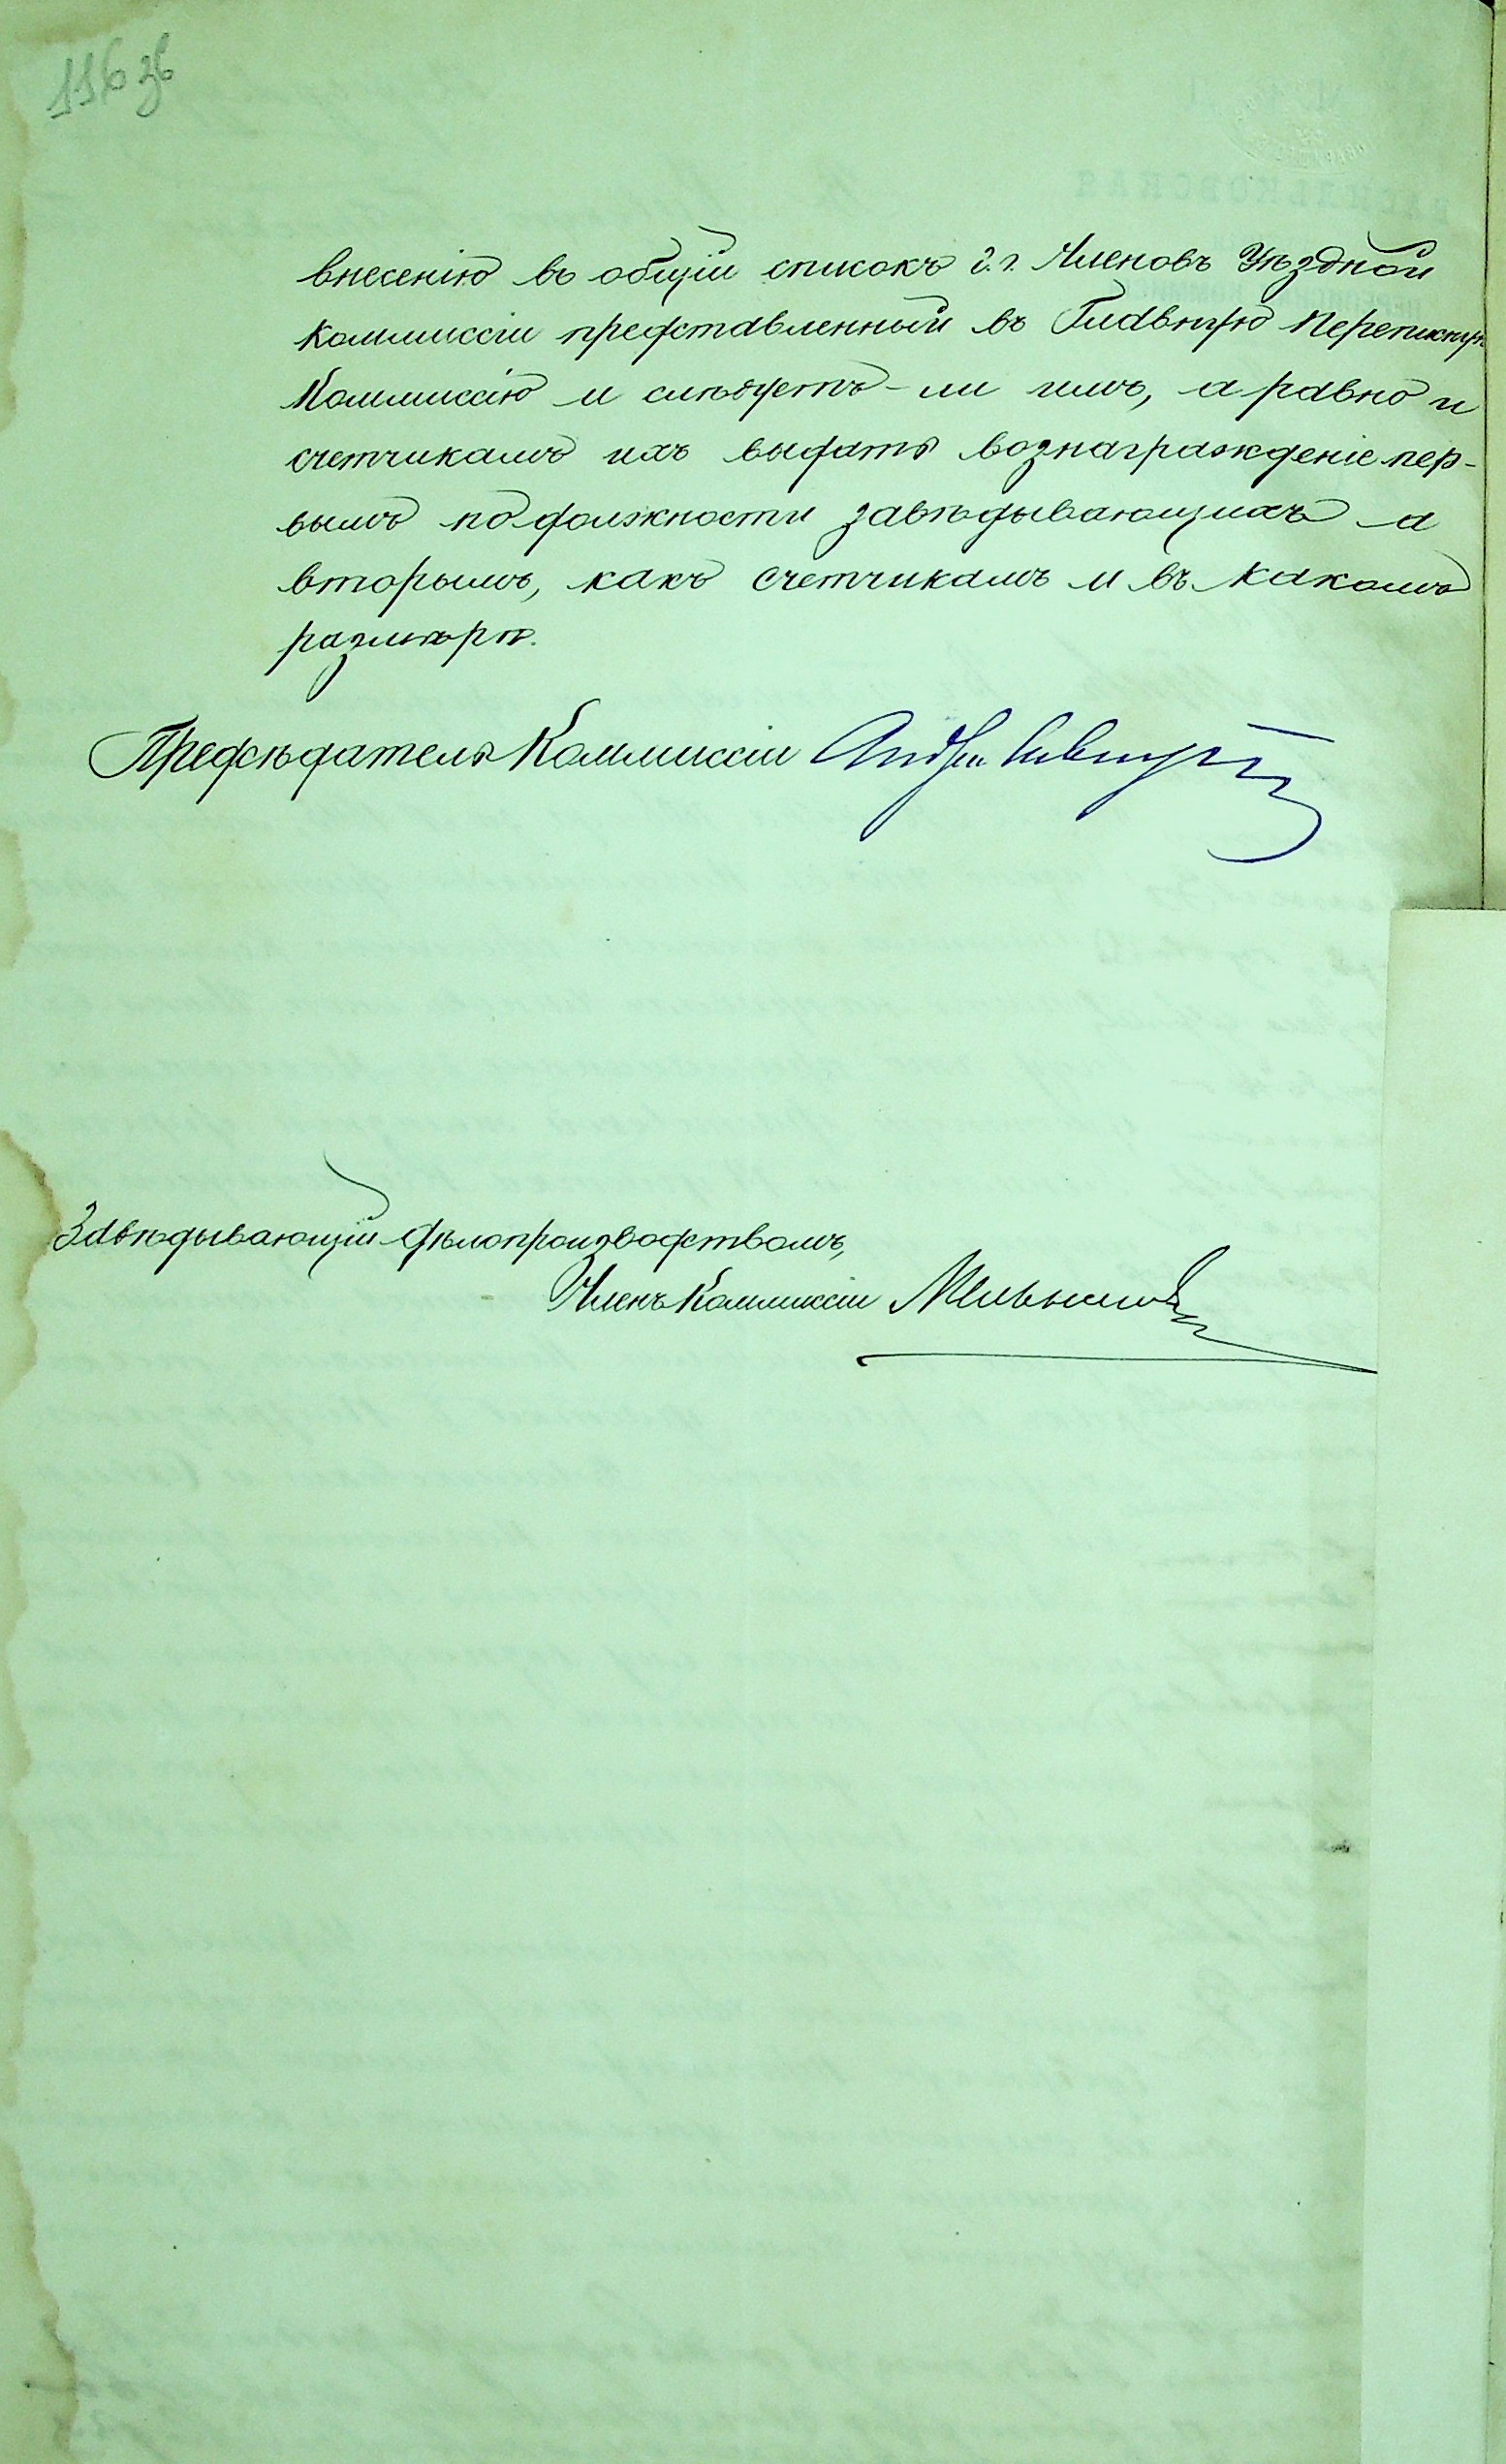 116 зв
внесенію въ общій списокъ г.г. Членовъ Уѣздной
Коммиссіи представленный въ Главную Переписную
Коммиссію и слѣдуетъ-ли имъ, а равно и
счетчикамъ ихъ выдать вознагражденіе пер-
вымъ по должности завѣдывающихъ а
вторымъ, какъ счетчикамъ и въ какомъ
размѣрѣ.
Предсѣдатель Коммиссіи
Завѣдывающій дѣлопроизводствомъ,
Членъ Коммиссіи